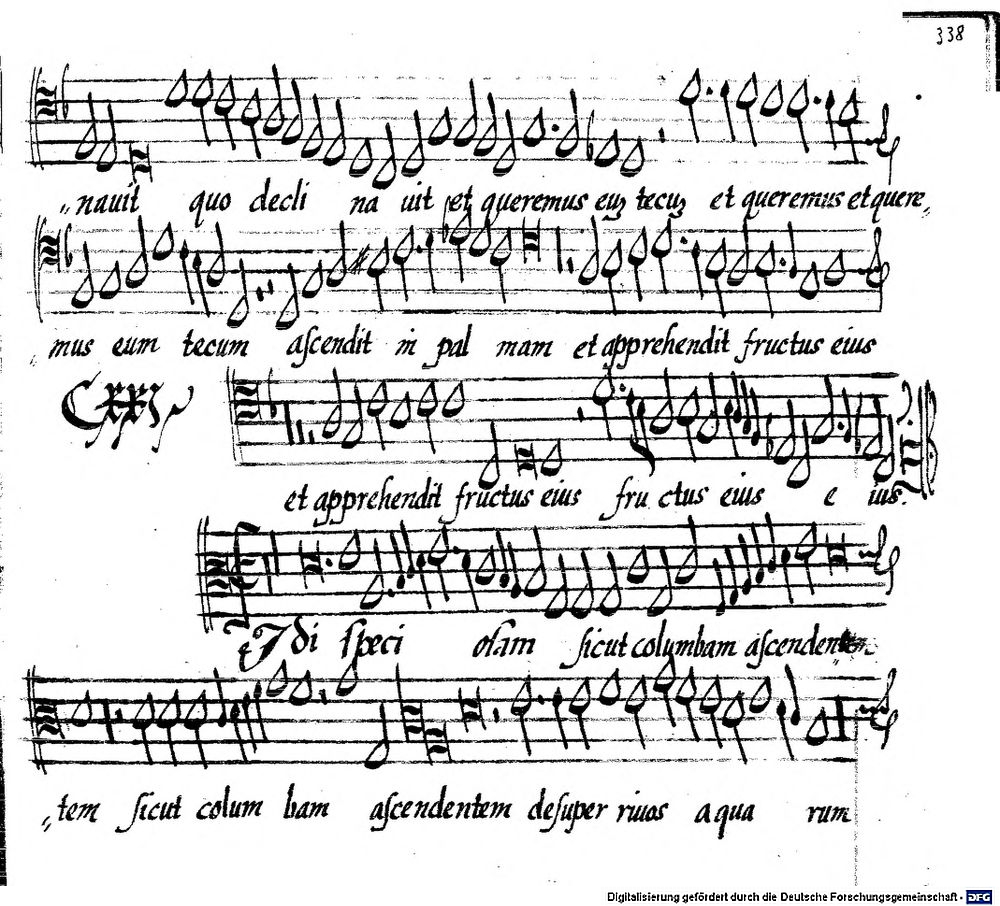 338
nauit quo decli na uit et queremus euȝ tecuȝ et queremus et quere„
mus eum tecum ascendit in pal mam et apprehendit fructus eius
CXXI
et apprehendit fructus eius fru ctus eius e ius.
Idi speci osam sicut columbam ascendentem
„tem sicut colum bam ascendentem desuper riuos a qua rum
Digitalisierung gefördert durch die Deutsche Forschungsgemeinschaft - DFG